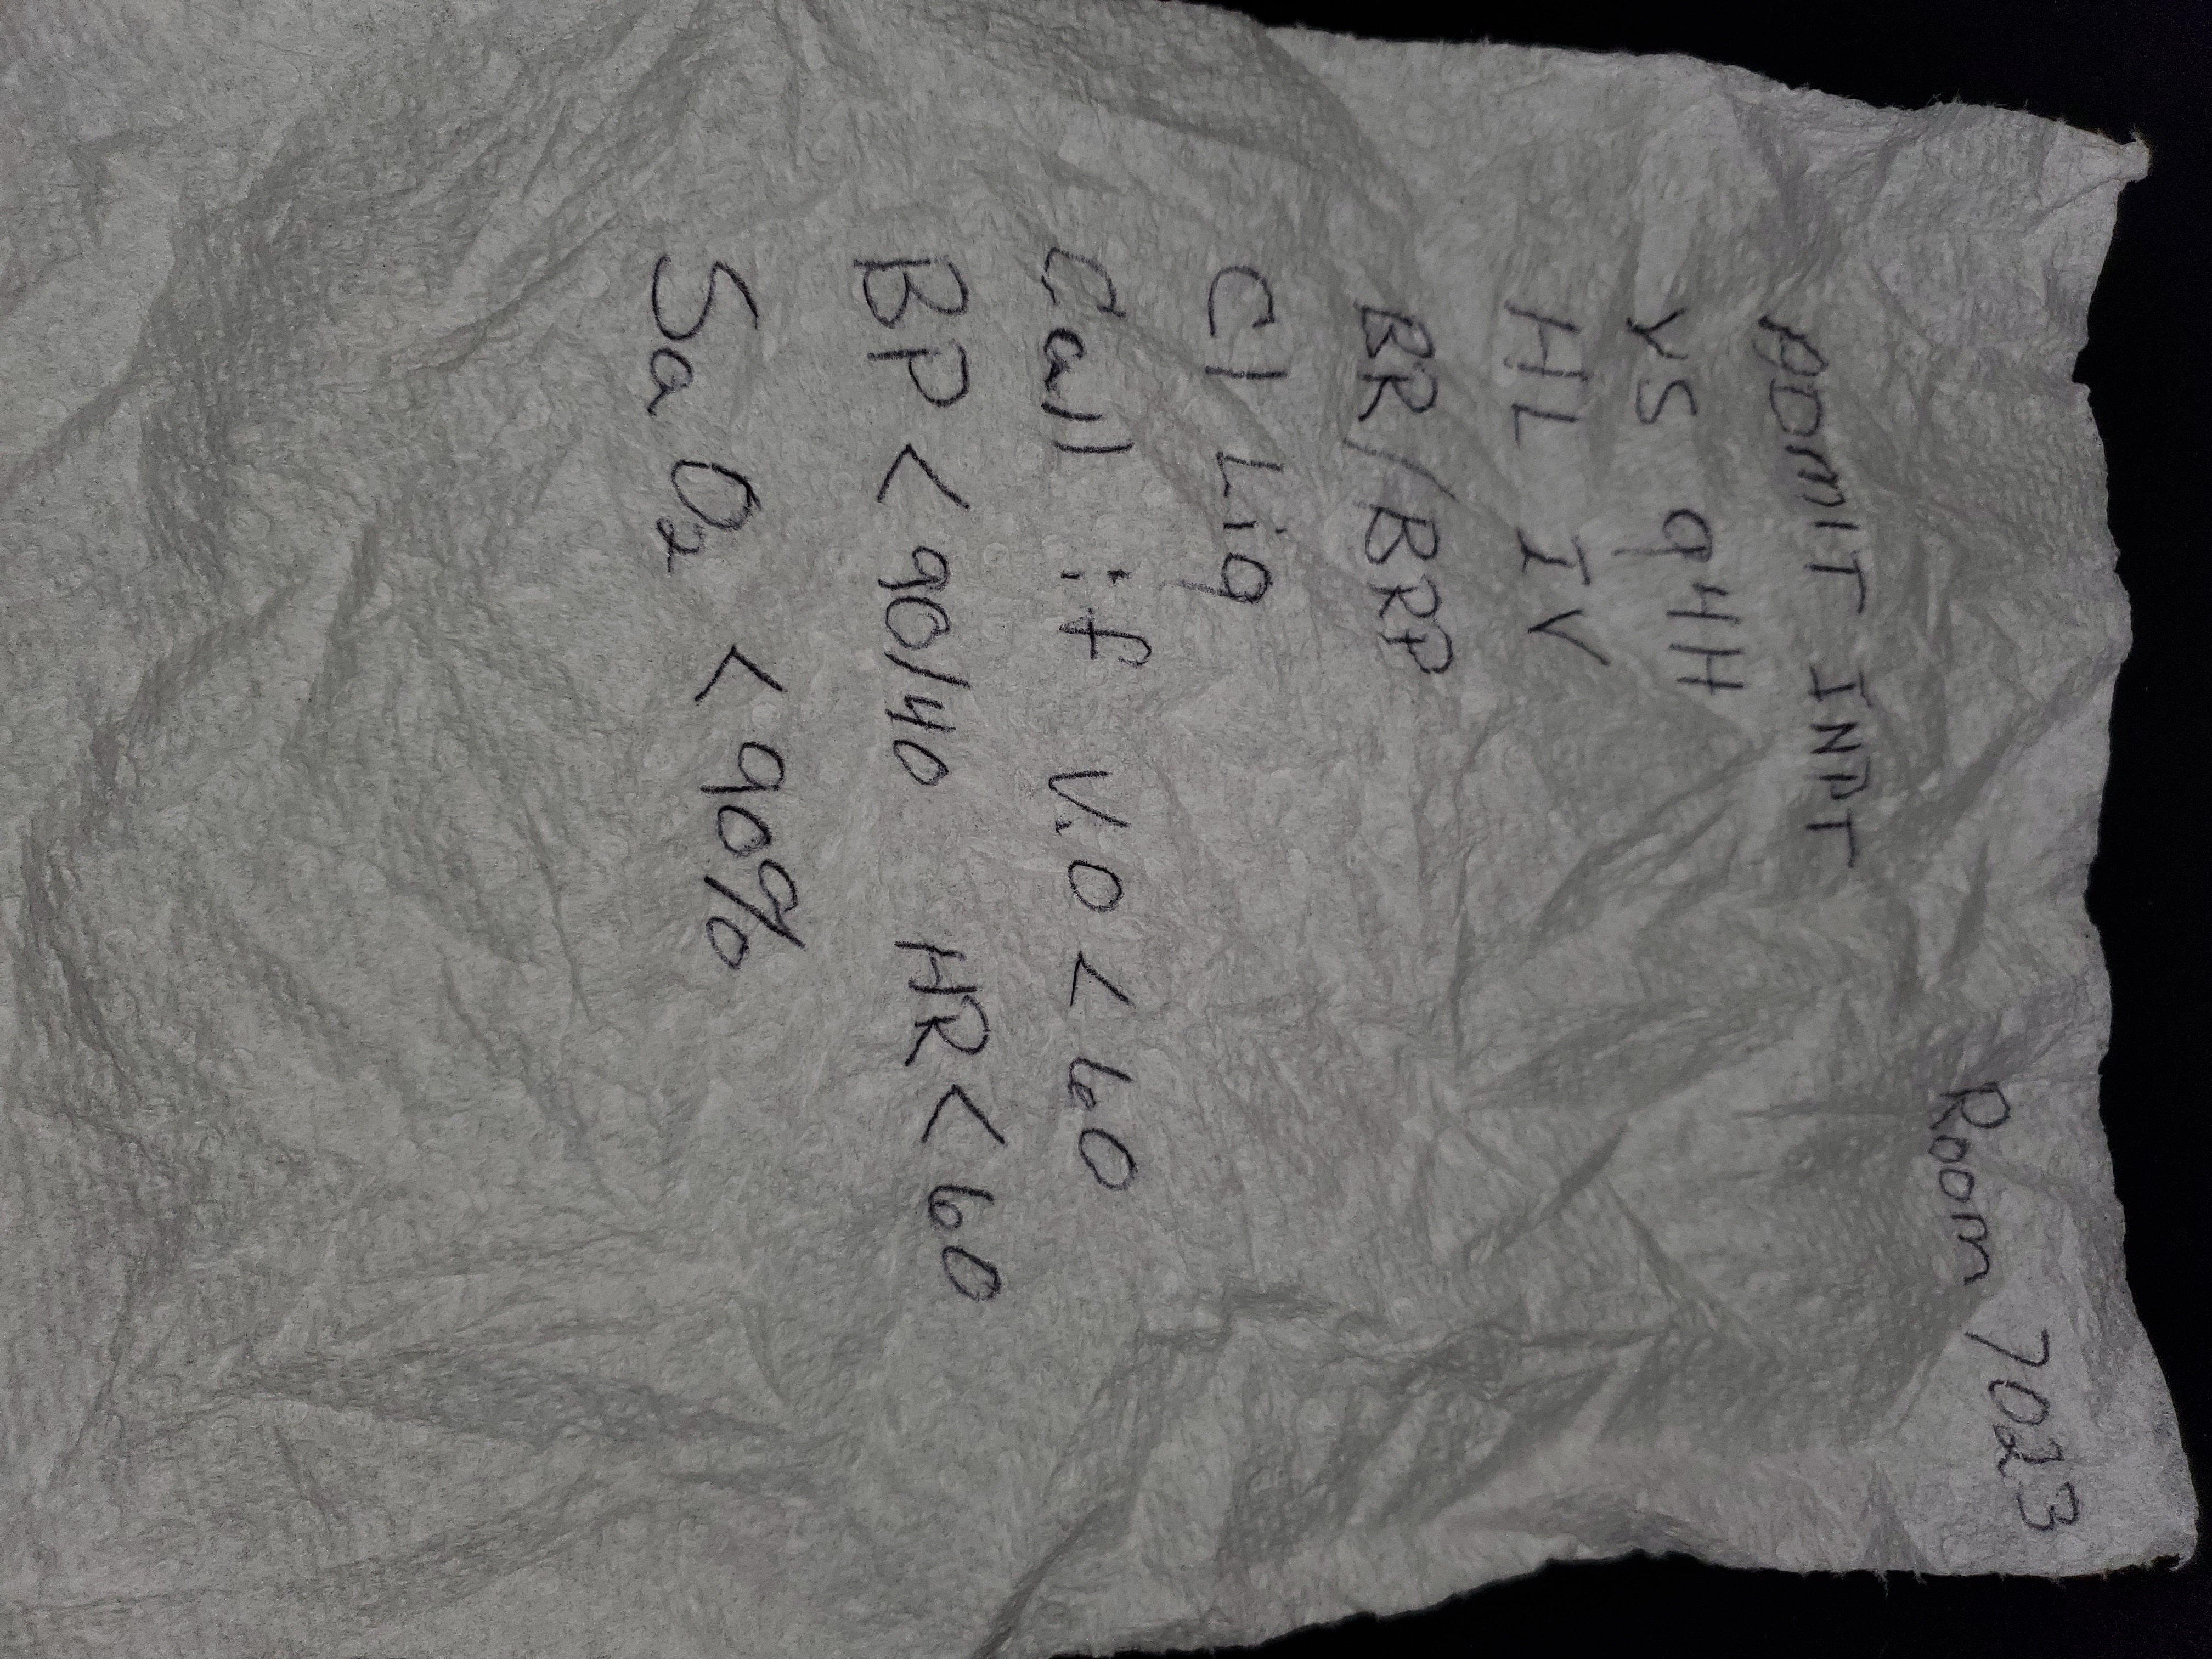 Room 7023
ADMIT INPT
VS q4H
HL IV
BR/BRP
Cl Liq
Call if V.O < 60
BP < 90/40 HR < 60
SaO₂ < 90%